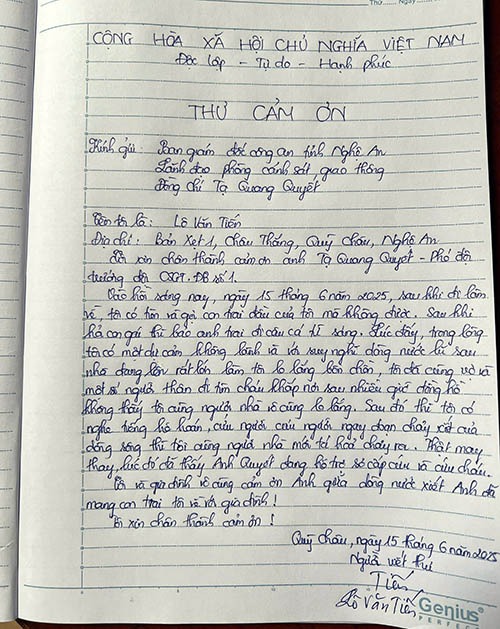 Thứ ........ Ngày
CỘNG HÒA XÃ HỘI CHỦ NGHĨA VIỆT NAM
Độc lập - Tự do - Hạnh phúc
THƯ CẢM ƠN
Kính gửi: Ban giám đốc công an tỉnh Nghệ An
Lãnh đạo phòng cảnh sát giao thông
Đồng chí Tạ Quang Quyết
Tên tôi là: Lô Văn Tiến
Địa chỉ: Bản Xẹt 1, Châu Thắng, Quỳ Châu, Nghệ An
Tôi xin chân thành cảm ơn anh Tạ Quang Quyết - Phó đội
trưởng đội CSGT. ĐB số 1.
Vào hồi sáng nay, ngày 15 tháng 6 năm 2025, sau khi đi làm
về, tôi có tìm và gọi con trai đầu của tôi mà không được. Sau khi
hỏi con gái thì bảo anh trai đi câu cá từ sáng. Lúc đấy, trong lòng
tôi có một dự cảm không lành và với suy nghĩ dòng nước lũ sau
nhà đang lớn rất lớn làm tôi lo lắng bồn chồn, tôi đã cùng vợ và
một số người thân đi tìm cháu khắp nơi sau nhiều giờ đồng hồ
không thấy tôi cùng người nhà vô cùng lo lắng. Sau đó thì tôi có
nghe tiếng hô hoán, cứu người cứu người ngay đoạn chảy xiết của
dòng sông thì tôi cùng người nhà mới tá hoả chạy ra. Thật may
thay, lúc đó đã thấy Anh Quyết đang hỗ trợ sơ cấp cứu và cứu cháu.
Tôi và gia đình vô cùng cảm ơn Anh giữa dòng nước xiết Anh đã
mang con trai tôi về với gia đình!
Tôi xin chân thành cảm ơn!
Quỳ Châu, ngày 15 tháng 6 năm 2025
Người viết thư
Tiến
Lô Văn Tiến
Genius
PERFECT